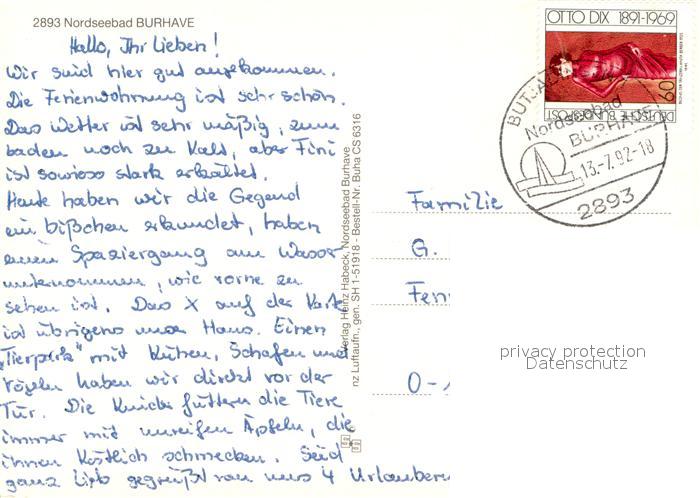 2893 Nordseebad BURHAVE
Hallo, Ihr Lieben!
Wir sind hier gut angekommen.
Die Ferienwohnung ist sehr schön.
Das Wetter ist sehr mäßig, zum
baden noch zu kalt, aber Fini
ist sowieso stark erkältet.
Heute haben wir die Gegend
ein bißchen erkundet, haben
einen Spaziergang am Wasser
unternommen, wie vorne zu
sehen ist. Das X auf der Karte
ist übrigens unser Haus. Einen
"Tierpark" mit Kühen, Schafen und
Vögeln haben wir direkt vor der
Tür. Die Kinder füttern die Tiere
immer mit unreifen Äpfeln, die
ihnen köstlich schmecken. Seid
ganz lieb gegrüßt von uns 4 Urlaubern
Verlag Heinz Habeck, Nordseebad Burhave
nz Luftaufn., gen. SH 1-51918 - Bestell-Nr. Buha CS 6316
OTTO DIX 1891-1969
60
DEUTSCHE BUNDESPOST
Nordseebad
BURHAVE
13.-7.92-18
2893
Familie
G.
Fen
O-1
privacy protection
Datenschutz